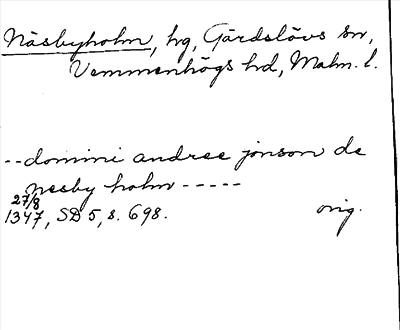 Näsbyholm, hg, Gärdslövs sn,
Vemmenhögs hd, Malm. l.
--domini andree jonson de
nesby holm -----
27/8
1347, SD 5, s. 698. orig.